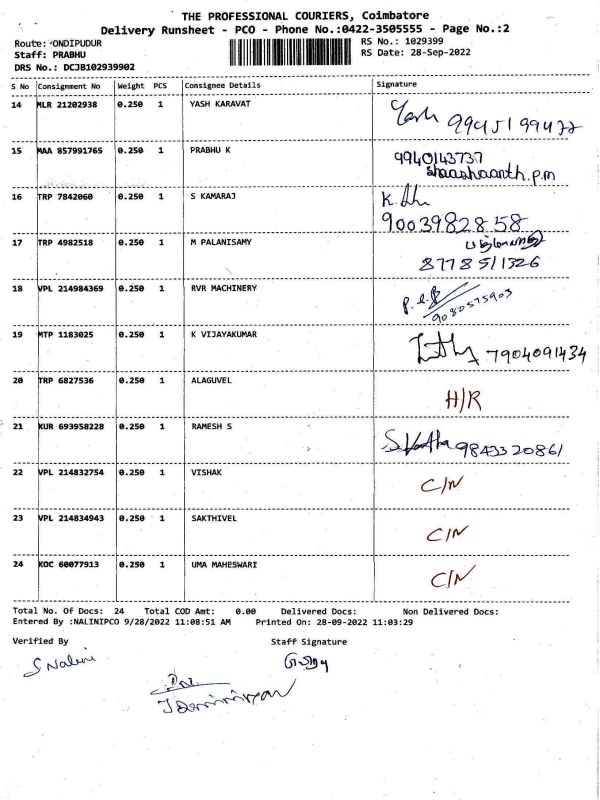 THE PROFESSIONAL COURIERS, Coimbatore
Delivery Runsheet - PCO - Phone No.:0422-3505555 - Page No.:2
Route: ONDIPUDUR
Staff: PRABHU
DRS No.: DCJB102939902
RS No.: 1029399
RS Date: 28-Sep-2022
S No Consignment No Weight PCS Consignee Details Signature
14 MLR 21202938 0.250 1 YASH KARAVAT
Yash 9945199422
15 MAA 857991765 0.250 1 PRABHU K
9940143737
shaashaanth.p.m
16 TRP 7842060 0.250 1 S KAMARAJ
9003982858
17 TRP 4982518 0.250 1 M PALANISAMY
8778511326
18 VPL 214984369 0.250 1 RVR MACHINERY
9080575903
19 MTP 1183025 0.250 1 K VIJAYAKUMAR
7904091434
20 TRP 6827536 0.250 1 ALAGUVEL
H/R
21 KUR 693958228 0.250 1 RAMESH S
9843320861
22 VPL 214832754 0.250 1 VISHAK
C/N
23 VPL 214834943 0.250 1 SAKTHIVEL
C/N
24 KOC 60077913 0.250 1 UMA MAHESWARI
C/N
Total No. Of Docs: 24 Total COD Amt: 0.00 Delivered Docs: Non Delivered Docs:
Entered By :NALINIPCO 9/28/2022 11:08:51 AM Printed On: 28-09-2022 11:03:29
Verified By Staff Signature
S Nalini